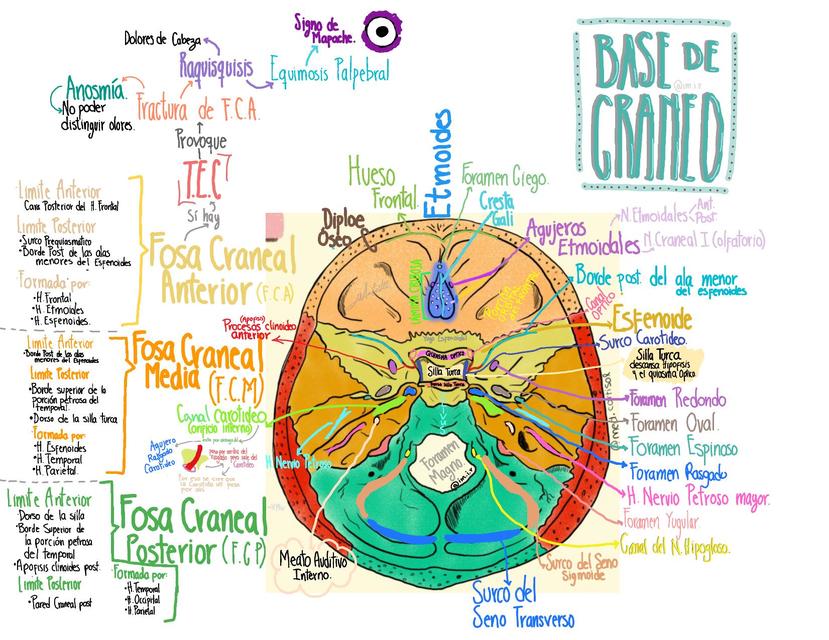 BASE DE
CRANEO
@im.ir
Signo de
Mapache.
Dolores de Cabeza
Raquisquisis
Equimosis Palpebral
Anosmía.
No poder
distinguir olores.
Fractura de F.C.A.
Provoque
T.E.C
Si hay
Fosa Craneal
Anterior (F.C.A)
Limite Anterior
Cara Posterior del H. Frontal
Limite Posterior
•Surco Prequiasmático
•Borde Post de las alas
menores del Esfenoides
Formada por:
•H. Frontal
•H. Etmoides
•H. Esfenoides.
Fosa Craneal
Media (F.C.M)
Limite Anterior
•Borde Post de las alas
menores del Esfenoides
Limite Posterior
•Borde superior de la
porción petrosa del
temporal.
•Dorso de la silla turca
Formada por:
•H. Esfenoides
•H. Temporal
•H. Parietal.
Fosa Craneal
Posterior (F.C.P)
Limite Anterior
•Dorso de la silla
•Borde Superior de
la porción petrosa
del temporal
•Apofisis clinoides post.
Limite Posterior
•Pared Craneal post
Formada por:
•H. Temporal
•H. Occipital
•H. Parietal
Hueso
Frontal.
Etmoides
Foramen Ciego.
Cresta
Gali
Diploe
Oseo
Agujeros
Etmoidales
N. Etmoidales
Ant.
Post
N. Craneal I (olfatorio)
Borde post. del ala menor
del esfenoides
Canal
Optico
Esfenoide
Surco Carotideo.
Silla Turca
descansa hipofisis
y el quiasma óptico
Foramen Redondo
Foramen Oval.
Foramen Espinoso
Foramen Rasgado
H. Nervio Petroso mayor.
Foramen Yugular.
Canal del N. Hipogloso.
Surco del Seno
Sigmoide
Surco del
Seno Transverso
Meato Auditivo
Interno.
(Apofisis)
Procesos clinoides
anterior
Canal carotideo
(orificio interno)
Agujero
Rasgado
Carotideo
H. Nervio Petroso
Yugo Esfenoidal
Silla Turca
Foramen
Magno
@im.ir